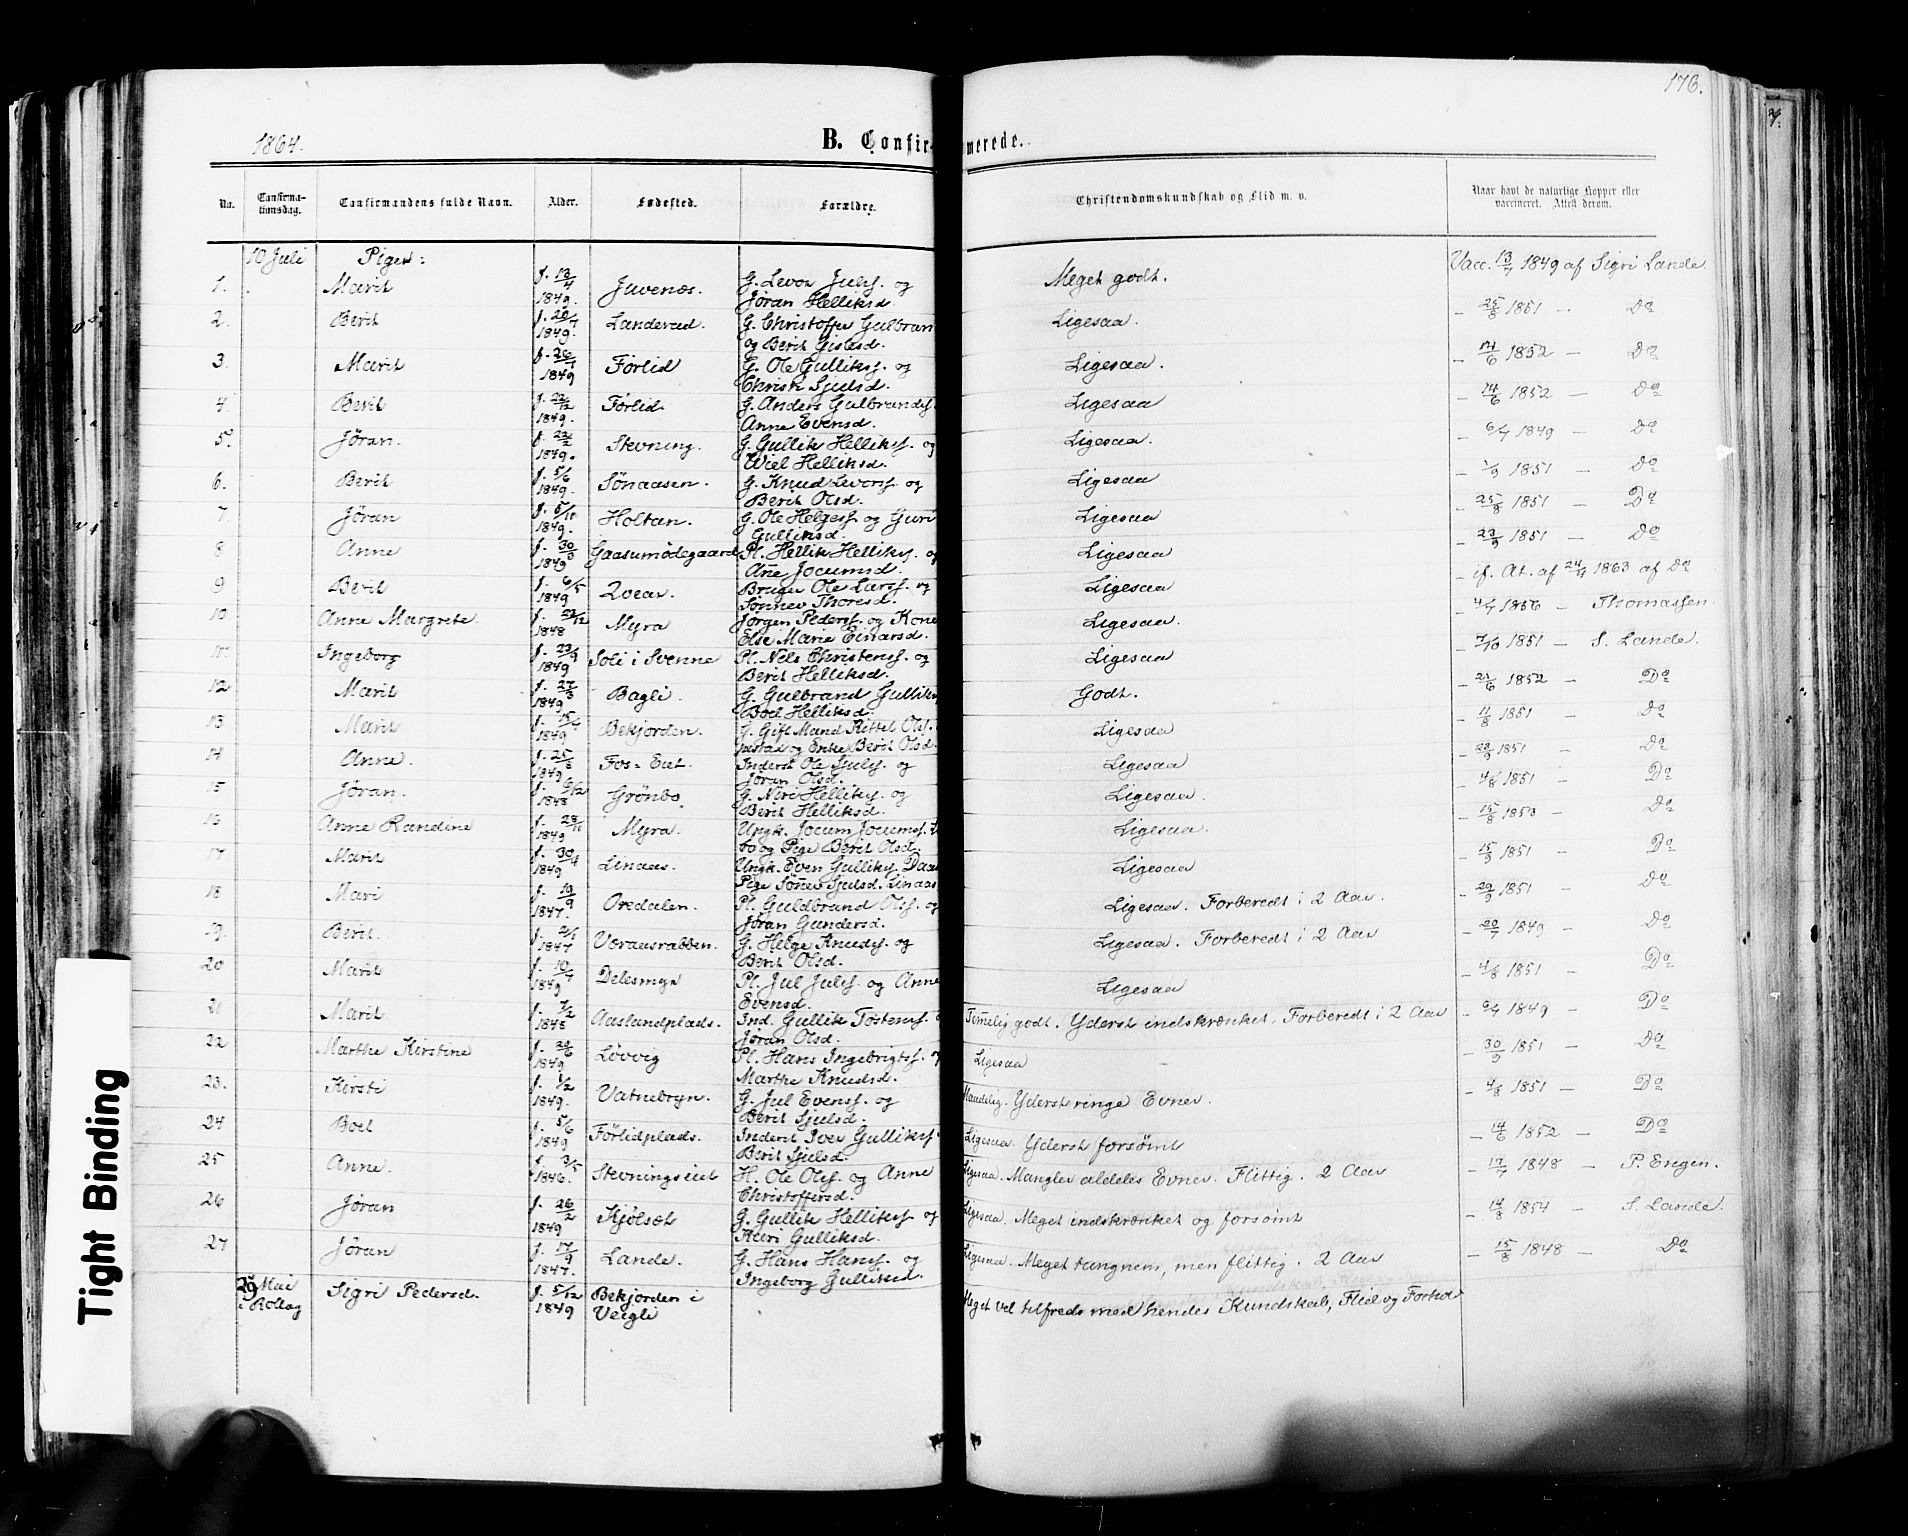 176.
1864.
B. Confirmerede.
No. Confirmationsdag. Confirmandens fulde Navn. Alder. Fødested. Forældre. Christendomskundskab og Flid m. v. Naar havt de naturlige Kopper eller vaccineret. Attest derom.
10 Juli Piger:
1. Marit f. 13/4 1849. Juvenæs. G. Levor Julsf. og Jøran Helliksd. Meget godt. Vacc. 13/7 1849 af Sigri Lande
2. Berit 1849. Landerud. G. Christoffer Gulbran og Berit Gislesd. Ligesaa. - 25/8 1851 - Do
3. Marit 1849 Førlid G. Ole Gulliksf. og Sjulsd. Ligesaa. - 14/6 1852 - Do
4. Berit f. 22/12 1849. Førlid. G. Anders Gulbrandsf. Anne Evensd. Ligesaa - 14/6 1852 - Do
5. Jøran. f. 22/2 1849. Stevning. G. Gullik Helliksf. og Wiel Helliksd. Ligesaa. - 6/7 1849 - Do
6. Berit f. 5/6 1849. Sønaasen. G. Knud Levorsf. og Berit Olsd. Ligesaa - 1/9 1851 - Do
7. Jøran 1849. Holtan. G. Ole Helgesf. og Guri Gulliksd. Ligesaa - 25/8 1851 - Do
8 Anne f. 30/3 1849 Gaasumødegaard Pl. Hellik Helliksf. og Anne Jocumsd. Ligesaa - 23/9 1851 - Do
9 Berit f. 6/5 1849 Qvear. Bruger Ole Larsf. og Sønnev Thoresd. Ligesaa - if. At. af 24/4 1863 af Do
10 Anne Margrete. 1848 Myra Jørgen Pedersf. og Kone Else Marie Einarsd. Ligesaa. - 4/7 1856 - Thomassen.
11 Ingeborg f. 23/9 1849 Soli i Svenne Pl. Nels Christensf. og Berit Helliksd. Ligesaa - 7/10 1851 - S. Lande.
12 Marit f. 27/3 1849 Bagli. G. Gulbrand Gulliks Boel Helliksd. Godt. - 21/6 1852 - Do
13 Marit 1849 Bekjorden. G. Gift Mand Kittel Olsf. og Enke Berit Olsd. Ligesaa - 11/8 1851 - Do
14 Anne. 1849 Fos-Eiet. Inderst Ole Julsf. og Jøran Olsd. Ligesaa - 23/9 1851 - Do
15 Jøran. f. 6/12 1848 Grønbø G. Niri Helliksf. og Berit Helliksd. Ligesaa. - 4/8 1851 - Do
16 Anne Randine 1849 Myra. Ungk. Jocum Jocumsf. og Pige Berit Olsd. Ligesaa. - 15/8 1853 - Do
17 Marit f. 30/4 1849 Linaas. Ungk. Even Gulliksf. Daa Pige Sønnev Sjulsd. Linaas Ligesaa - 15/9 1851 - Do
18 Mari f. 19/9 1847. Ovedalen. Pl. Guldbrand Olsf. og Jøran Gundersd. Ligesaa. Forberedt i 2 Aar. - 29/9 1851 - Do
19. Berit. 1847 Voraasrabben. G. Helge Knudsf. og Berit Olsd. Ligesaa. Forberedt i 2 Aar - 20/7 1849 - Do
20 Marit 1849 Delesmyr Pl. Jul Julsf. og Anne Evensd. Ligesaa - 4/8 1851 - Do
21 Marit f. 7/2 1848 Aaslandplads. Ind. Gullik Tostensf. Jøran Olsd. Temmelig godt. Yderst indskrænket. Forberedt i 2 Aar - 6/7 1849 - Do
22 Marthe Kirstine f. 20/6 1849 Løvvig Pl. Hans Ingebrigtsf. og Marthe Knudsd. Ligesaa - 30/9 1851 - Do
23. Kirsti f. 1/2 1849. Vatnebryn. G. Jul Evensf. og Berit Sjulsd. Maadelig. Yderst ringe Evner. - 4/8 1851 - Do
24 Boel f. 5/6 1849 Førlidplads. Inderst Iver Gulliksf. Berit Sjulsd. Ligesaa. Yderst forsømt - 14/6 1852 - Do
25 Anne. f. 3/5 1846. Stevningseiet H. Ole Olsf. og Anne Christoffersd. Ligesaa. Mangler aldeles Evner. Flittig. 2 Aar - 17/7 1848 - P. Engen.
26 Jøran f. 26/2 1849 Kjølsæt G. Gullik Helliksf. og Guri Gulliksd. Ligesaa. Meget indskrænket og forsømt - 14/8 1854 - S. Lande.
27 Jøran f. 17/9 1847. Lande. G. Hans Hansf. og Ingeborg Gulliksd. Ligesaa. Meget tungnem, men flittig. 2 Aar - 15/8 1848 - Do
29 Mai i Rollag Sigri Pedersd. f. 5/12 1849 Bekjorden i Veigli Meget vel tilfreds med hendes Kundskab, Flid og Forhol
Tight Binding